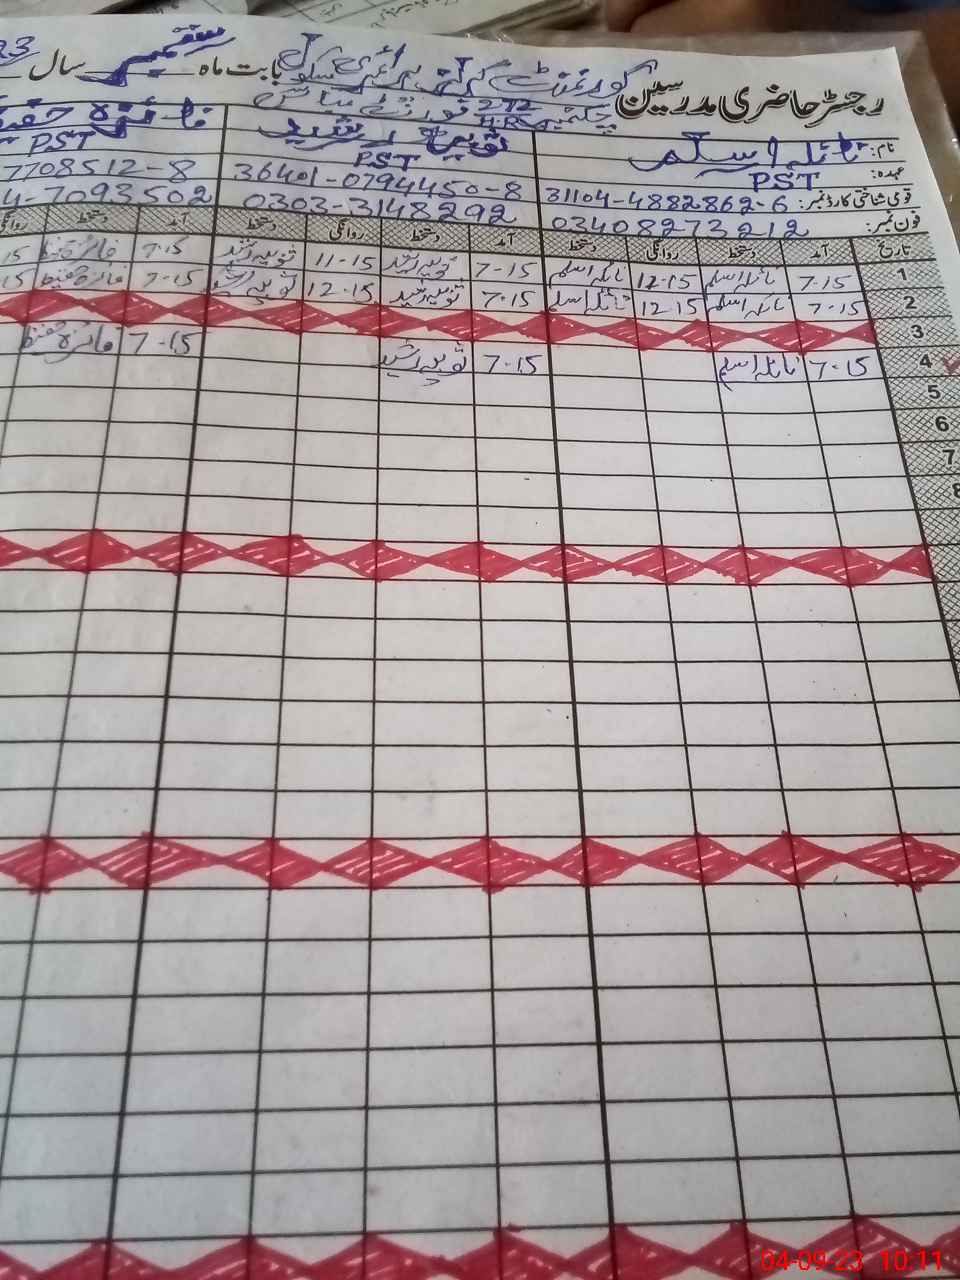 رجسٹر حاضری مدرسین گورنمنٹ گرلز پرائمری سکول بابت ماہ ستمبر سال 23
چک نمبر 272 H.R فورٹ عباس
نام: نائلہ اسلم ثوبیہ رشید فائزہ حفیظ
عہدہ: PST PST PST
قومی شناختی کارڈ نمبر: 31104-4882862-6 36401-0794450-8 7708512-8
فون نمبر: 03408273212 0303-3148292 4-7093502
تاریخ آمد دستخط روانگی دستخط آمد دستخط روانگی دستخط آمد دستخط روانگی
1 7-15 نائلہ اسلم 12-15 نائلہ اسلم 7-15 ثوبیہ رشید 11-15 ثوبیہ رشید 7-15 فائزہ حفیظ 15
2 7-15 نائلہ اسلم 12-15 نائلہ اسلم 7-15 ثوبیہ رشید 12-15 ثوبیہ رشید 7-15 فائزہ حفیظ 15
3
4 7-15 نائلہ اسلم 7-15 ثوبیہ رشید 7-15 فائزہ حفیظ
5
6
7
8
04-09-23 10:11